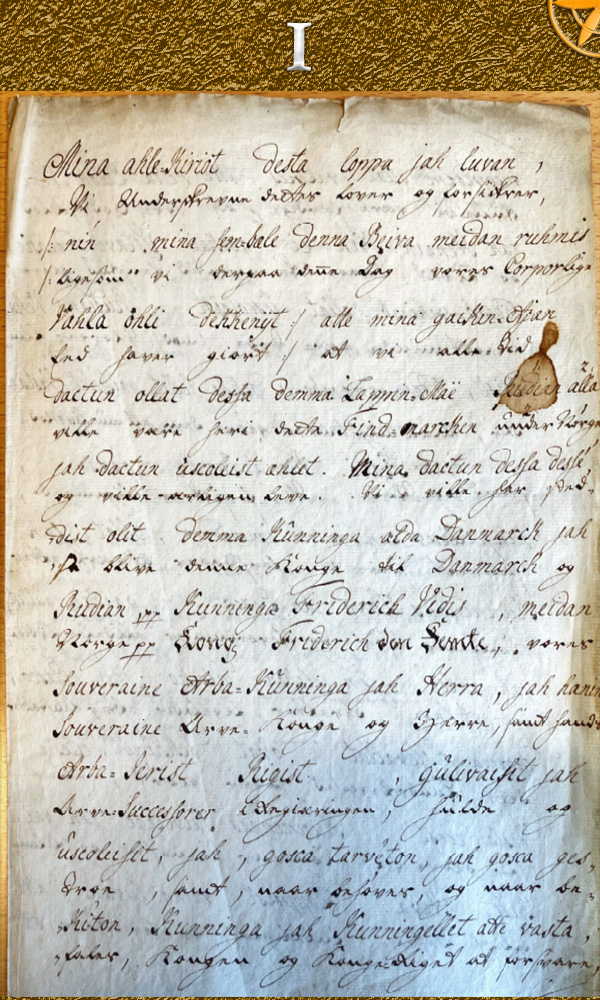 I
Mina ahle-Kiriot desta loppa jah luvan,
Vi Underskrevne dettes Lover og forsikrer,
/: nin mina sem-bale denna Beiva meidan ruhmis
/: ligesom vi derpaa denne Dag vores Corporlige
Vahla ohli dekkerigt :/ atte mina gaiken-Ajan
Eed haver giort :/ at vi alle-Tid
dactun ollat dessa demma Lappin-Mäe Rudian alla
ville være her i dette Find-marcken under Norge
jah dactun uscoleist ahlet. Mina dactun dessa desse
og ville ærligen leve. Vi ville her sted-
dist olit demma Kunninga alda Danmarck jah
se blive denne Konge til Danmarck og
Rudian pp Kunninga Friderich Vidis, meidan
Norge pp Kong Friderich den Femte, vores
Souveraine Arba-Kunninga jah Herra, jah hanin
Souveraine Arve-Konge og Herre, samt hans
Arba-Serist Rigist, gulivaisit jah
Arve-Successorer i Regieringen, hulde og
uscoleisit, jah, gosca tarveton, jah gosca ges-
troe, samt, naar behøves, og naar be-
-Kiton, Kunninga jah Kunningellet atte vasta,
-fales, Kongen og Konge-Riget at forsvare,